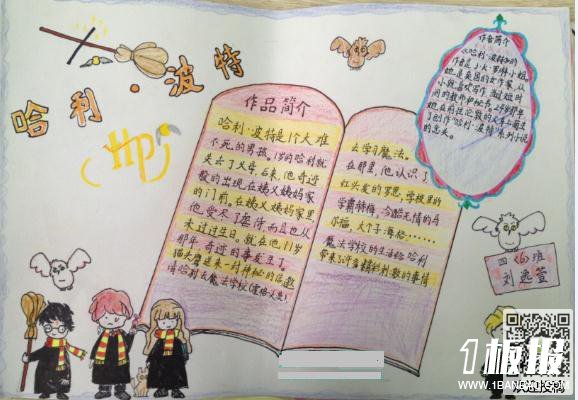 哈利·波特
Hp
作品简介
哈利·波特是1个大难
不死的男孩,1岁的哈利就
失去了父母。后来,他奇迹
般的出现在姨父姨妈家
的门前。在姨父姨妈家里
他受尽了虐待而且也从
未过过生日。就在他11岁
那年,奇迹的事发生了,
猫头鹰送来一封神秘的信邀
请哈利去魔法学校(霍格沃茨)
去学习魔法。
在那里,他认识了
红头发的罗恩,学校里的
学霸赫敏,冷酷无情的马
尔福,大个子海格……
魔法学校的生活给哈利
带来了许多精彩刺激的事情
作者简介
《哈利·波特》的
作者是J·K·罗林小姐,
她是英国的女作家,从
小就喜欢写作,做过短时
间的教师和秘书。24岁那年
她在前往伦敦的火车上萌生
了创作“哈利·波特”系列小说
的念头。
四〈6〉班
刘逸萱
1板报
WWW.1BANBAO.COM